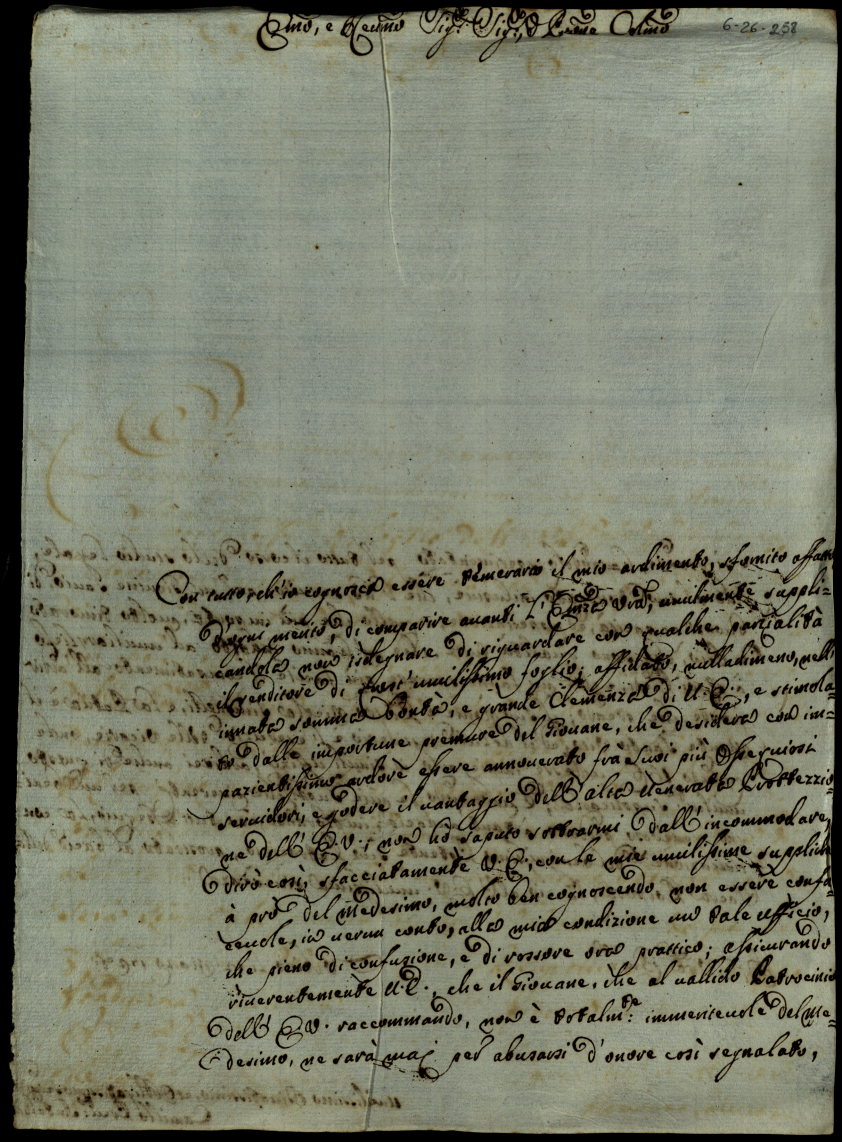 Em̃o, e Reũmo Sig.r Sig.r, e Prone Colmo
6-26-258
Con tutto, ch'io cognosca essere temerario il mio ardimento, sfornito affatto
d'ogni merito, di comparire avanti l'Em̃za Vrã, umilmente suppli=
candola non isdegnare di riguardare con qualche parzialità
il venditore di quest'umilissimo foglio; affidato, nulladimeno, nella
innata somma Bontà, e grande Clemenza di V. E., e stimola=
to dalle importune premure del Giovane, che desidera con im=
pazientissimo ardore essere annoverato frà suoi più ossequiosi
servidori, e godere il vantaggio dell'alta venerata Prottezzio=
ne dell'E. V., non hò saputo sottrarmi dall'incommodare,
dirò così, sfacciatamente V. E., con le mie umilissime suppliche
à prò del medesimo, molto ben cognoscendo, non essere confa=
cevole, in verun conto, alla mia condizione un tale ufficio,
che pieno di confusione, e di rossore ora prattico; assicurando
riverentemente V. E., che il Giovane, che al vallido Patrocinio
dell'E. V. raccommando, non è totalm.te immeritevole del me=
desimo, ne sarà maj per abusarsi d'onore così segnalato,